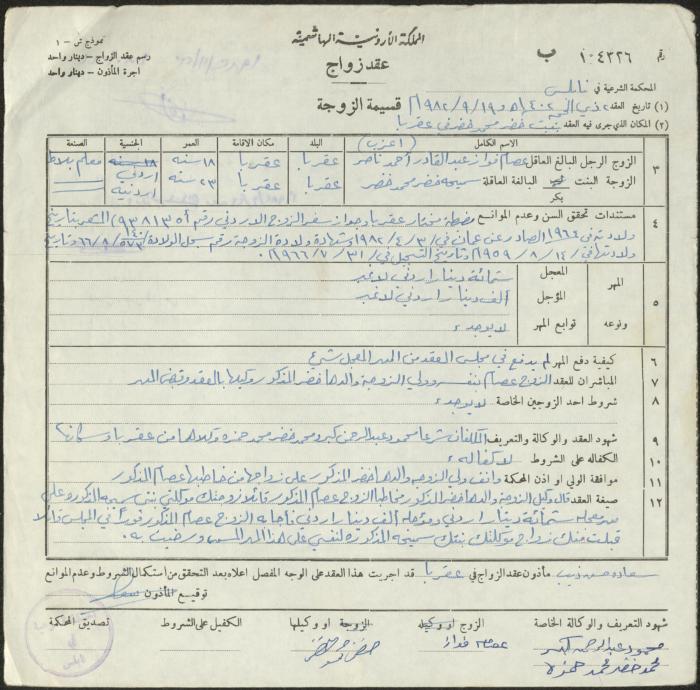 المملكة الأردنية الهاشمية
نموذج ش - ١
رسم عقد الزواج - دينار واحد
اجرة المأذون - دينار واحد
عقد زواج
رقم ٠٤٣٢٦ ب
المحكمة الشرعية في نابلس
قسيمة الزوجة
(١) تاريخ العقد ٢ ذي الحجة ١٤٠٢هـ و ١٩/٩/١٩٨٢م
(٢) المكان الذي جرى فيه العقد بيت خضر محمد خضر في عقربا
الاسم الكامل (اعزب) البلد مكان الاقامة العمر الجنسية الصنعة
٣ الزوج الرجل البالغ العاقل عصام فواز عبدالقادر احمد ناصر عقربا عقربا ١٨ سنه اردني معلم بلاط
الزوجة البنت البالغة العاقلة سميحه خضر محمد خضر عقربا عقربا ٢٣ سنه اردنية
بكر
٤ مستندات تحقق السن وعدم الموانع مضبطة مختار عقربا وجواز سفر الزوج الاردني رقم
ولادته في ١٩٦٤ الصادر عن عمان في ٣/٤/١٩٨٢ وشهادة ولادة الزوجة رقم سجل الولادة
ولادتها في ١٤/٨/١٩٥٩ وتاريخ التسجيل في ٣١/٧/١٩٦٦م
٥ المهر ونوعه
المعجل ستمائة دينار اردني لا غير
المؤجل الف دينار اردني لا غير
توابع المهر لا يوجد
٦ كيفية دفع المهر لم يدفع في مجلس العقد من المهر المعجل شيء
٧ المباشران للعقد الزوج عصام بنفسه وولي الزوجة والدها خضر المذكور وكيلها بالعقد وقبض المهر
٨ شروط احد الزوجين الخاصة لا يوجد
٩ شهود العقد والوكالة والتعريف المكلفان شرعا محمود عبدالرحمن ومحمد خضر محمد حمزه وكلاهما من عقربا وسكانها
١٠ الكفاله على الشروط لا كفاله
١١ موافقة الولي او اذن المحكمة وافق ولي الزوجة والدها خضر المذكور على زواجها من خاطبها عصام المذكور
١٢ صيغة العقد قال وكيل الزوجة والدها خضر المذكور مخاطبا الزوج عصام المذكور قائلا زوجتك موكلتي بنتي سميحه المذكوره على
مهر معجله ستمائة دينار اردني ومؤجله الف دينار اردني فأجابه الزوج عصام المذكور فورا في المجلس قائلا
قبلت منك زواج موكلتك بنتك سميحه المذكوره لنفسي على هذا المهر المسمى ورضيت به
مأذون عقد الزواج في عقربا قد اجريت هذا العقد على الوجه المفصل اعلاه بعد التحقق من استكمال الشروط وعدم الموانع
توقيع المأذون
شهود التعريف والوكالة الخاصة الزوج او وكيله الزوجة او وكيلها الكفيل على الشروط تصديق المحكمة
محمود عبدالرحمن
محمد خضر محمد حمزه
عصام فواز
خضر محمد خضر